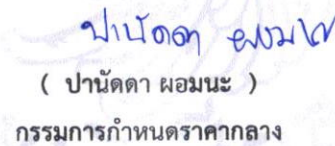 ปานัดดา ผอมนะ
( ปานัดดา ผอมนะ )
กรรมการกำหนดราคากลาง